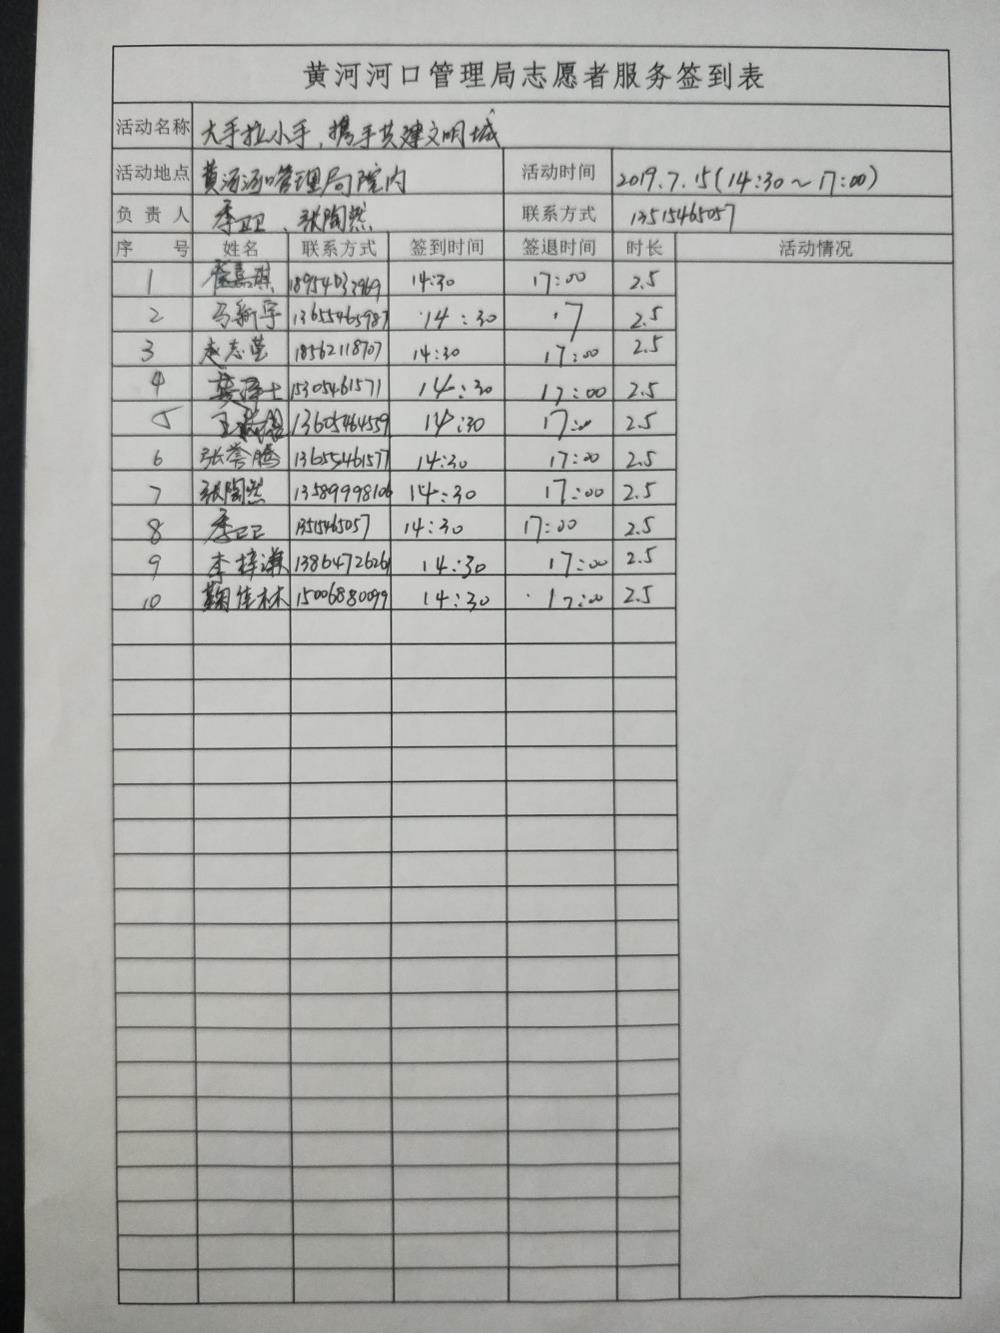 黄河河口管理局志愿者服务签到表
活动名称 大手拉小手，携手共建文明城
活动地点 黄河河口管理局院内 活动时间 2019.7.15(14:30～17:00)
负责人 季卫卫、张陶然 联系方式 13515465057
序号 姓名 联系方式 签到时间 签退时间 时长 活动情况
1 嘉琪 14:30 17:00 2.5
2 马新宇 13655465987 14:30 17 2.5
3 赵志莹 18562118707 14:30 17:00 2.5
4 15305461571 14:30 17:00 2.5
5 王 13605464559 14:30 17:0 2.5
6 张誉腾 13655461577 14:30 17:00 2.5
7 张陶然 13589998106 14:30 17:00 2.5
8 季卫卫 13515465057 14:30 17:00 2.5
9 李梓谦 13864726261 14:30 17:00 2.5
10 鞠佳林 15006880099 14:30 17:00 2.5